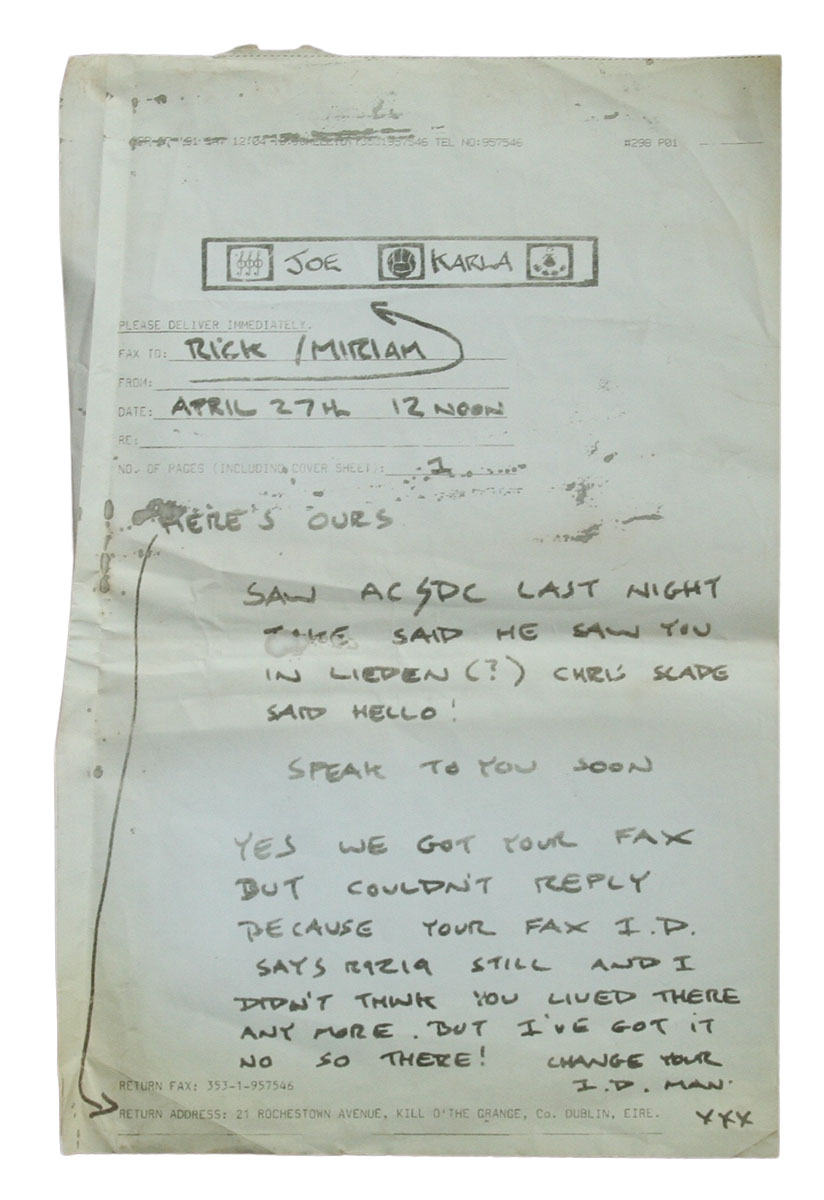 '91 12:04 TEL NO:957546 #298 P01
JOE KARLA
PLEASE DELIVER IMMEDIATELY.
FAX TO: RICK / MIRIAM
FROM:
DATE: APRIL 27TH 12 NOON
RE:
NO. OF PAGES (INCLUDING COVER SHEET): 1
HERE'S OURS
SAW AC⚡DC LAST NIGHT
SAID HE SAW YOU
IN LIEDEN (?) CHRIS SLADE
SAID HELLO!
SPEAK TO YOU SOON
YES WE GOT YOUR FAX
BUT COULDN'T REPLY
BECAUSE YOUR FAX I.D.
SAYS STILL AND I
DIDN'T THINK YOU LIVED THERE
ANY MORE. BUT I'VE GOT IT
NO SO THERE! CHANGE YOUR
I.D. MAN.
RETURN FAX: 353-1-957546
RETURN ADDRESS: 21 ROCHESTOWN AVENUE, KILL O'THE GRANGE, Co. DUBLIN, EIRE. XXX